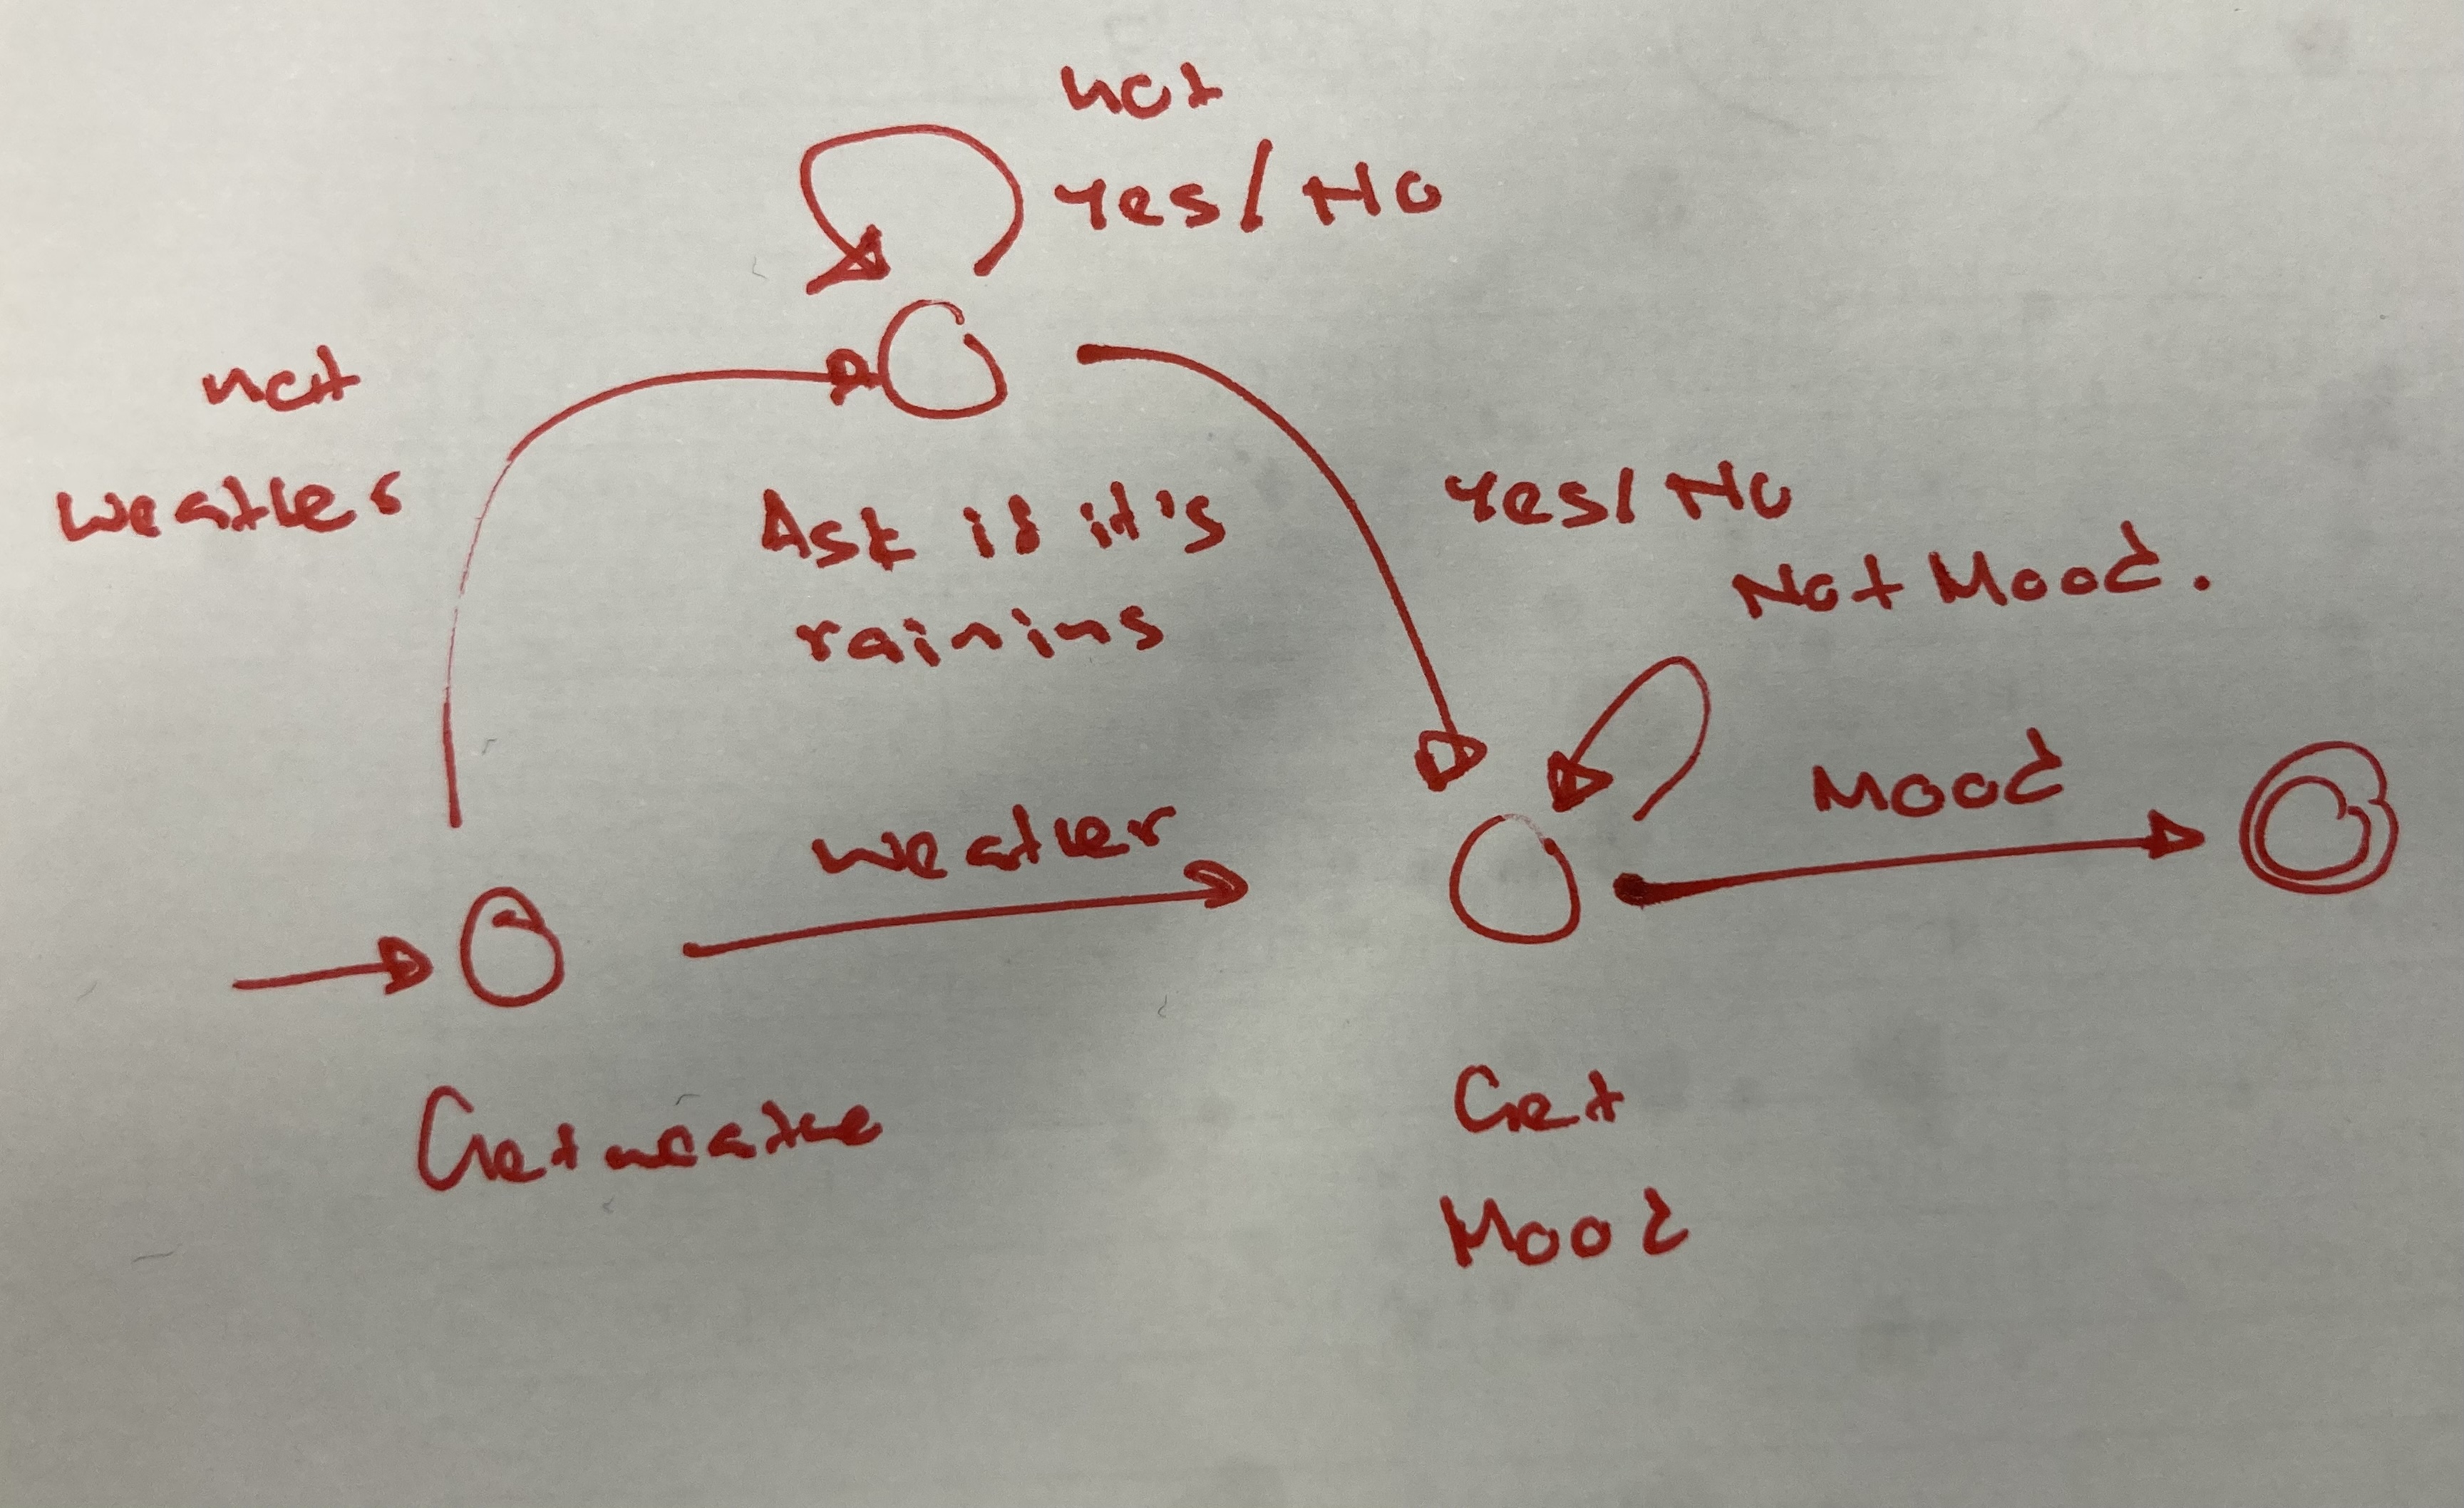 not
Yes/No
not
weather
Ask if it's
raining
Yes/No
Not Mood.
Mood
weather
Get weathe
Get
Mood